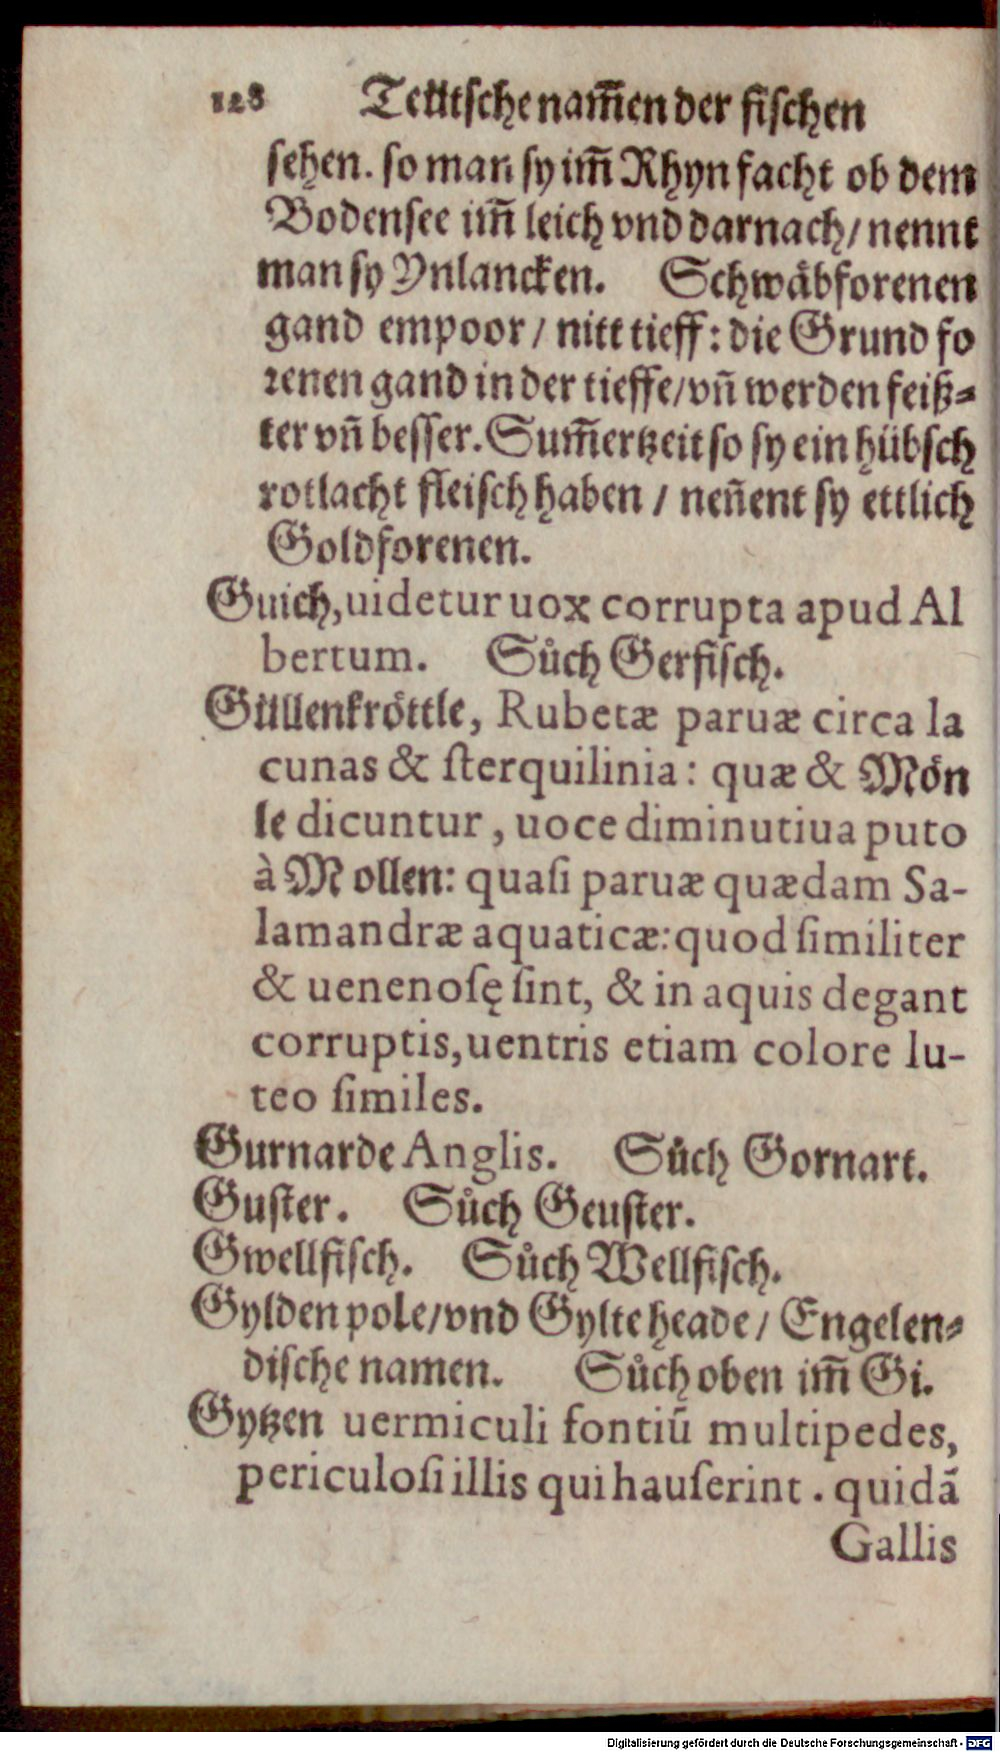 128 Teütsche nam̃en der fischen
sehen. so man sy im̃ Rhyn facht ob dem
Bodensee im̃ leich vnd darnach/ nennt
man sy Ynlancken. Schwåbforenen
gand empoor/ nitt tieff: die Grund fo
renen gand in der tieffe/ vñ werden feiß⸗
ter vñ besser. Sum̃ertzeit so sy ein hübsch
rotlacht fleisch haben/ neñent sy ettlich
Goldforenen.
Guich, uidetur uox corrupta apud Al
bertum. Sůch Gerfisch.
Güllenkröttle, Rubetæ paruæ circa la
cunas & sterquilinia: quæ & Mön
le dicuntur, uoce diminutiua puto
à Mollen: quasi paruæ quædam Sa-
lamandræ aquaticæ: quod similiter
& uenenosę sint, & in aquis degant
corruptis, uentris etiam colore lu-
teo similes.
Gurnarde Anglis. Sůch Gornart.
Guster. Sůch Geuster.
Gwellfisch. Sůch Wellfisch.
Gylden pole/ vnd Gylte heade/ Engelen⸗
dische namen. Sůch oben im̃ Gi.
Gytzen uermiculi fontiũ multipedes,
periculosi illis qui hauserint. quidã
Gallis
Digitalisierung gefördert durch die Deutsche Forschungsgemeinschaft - DFG